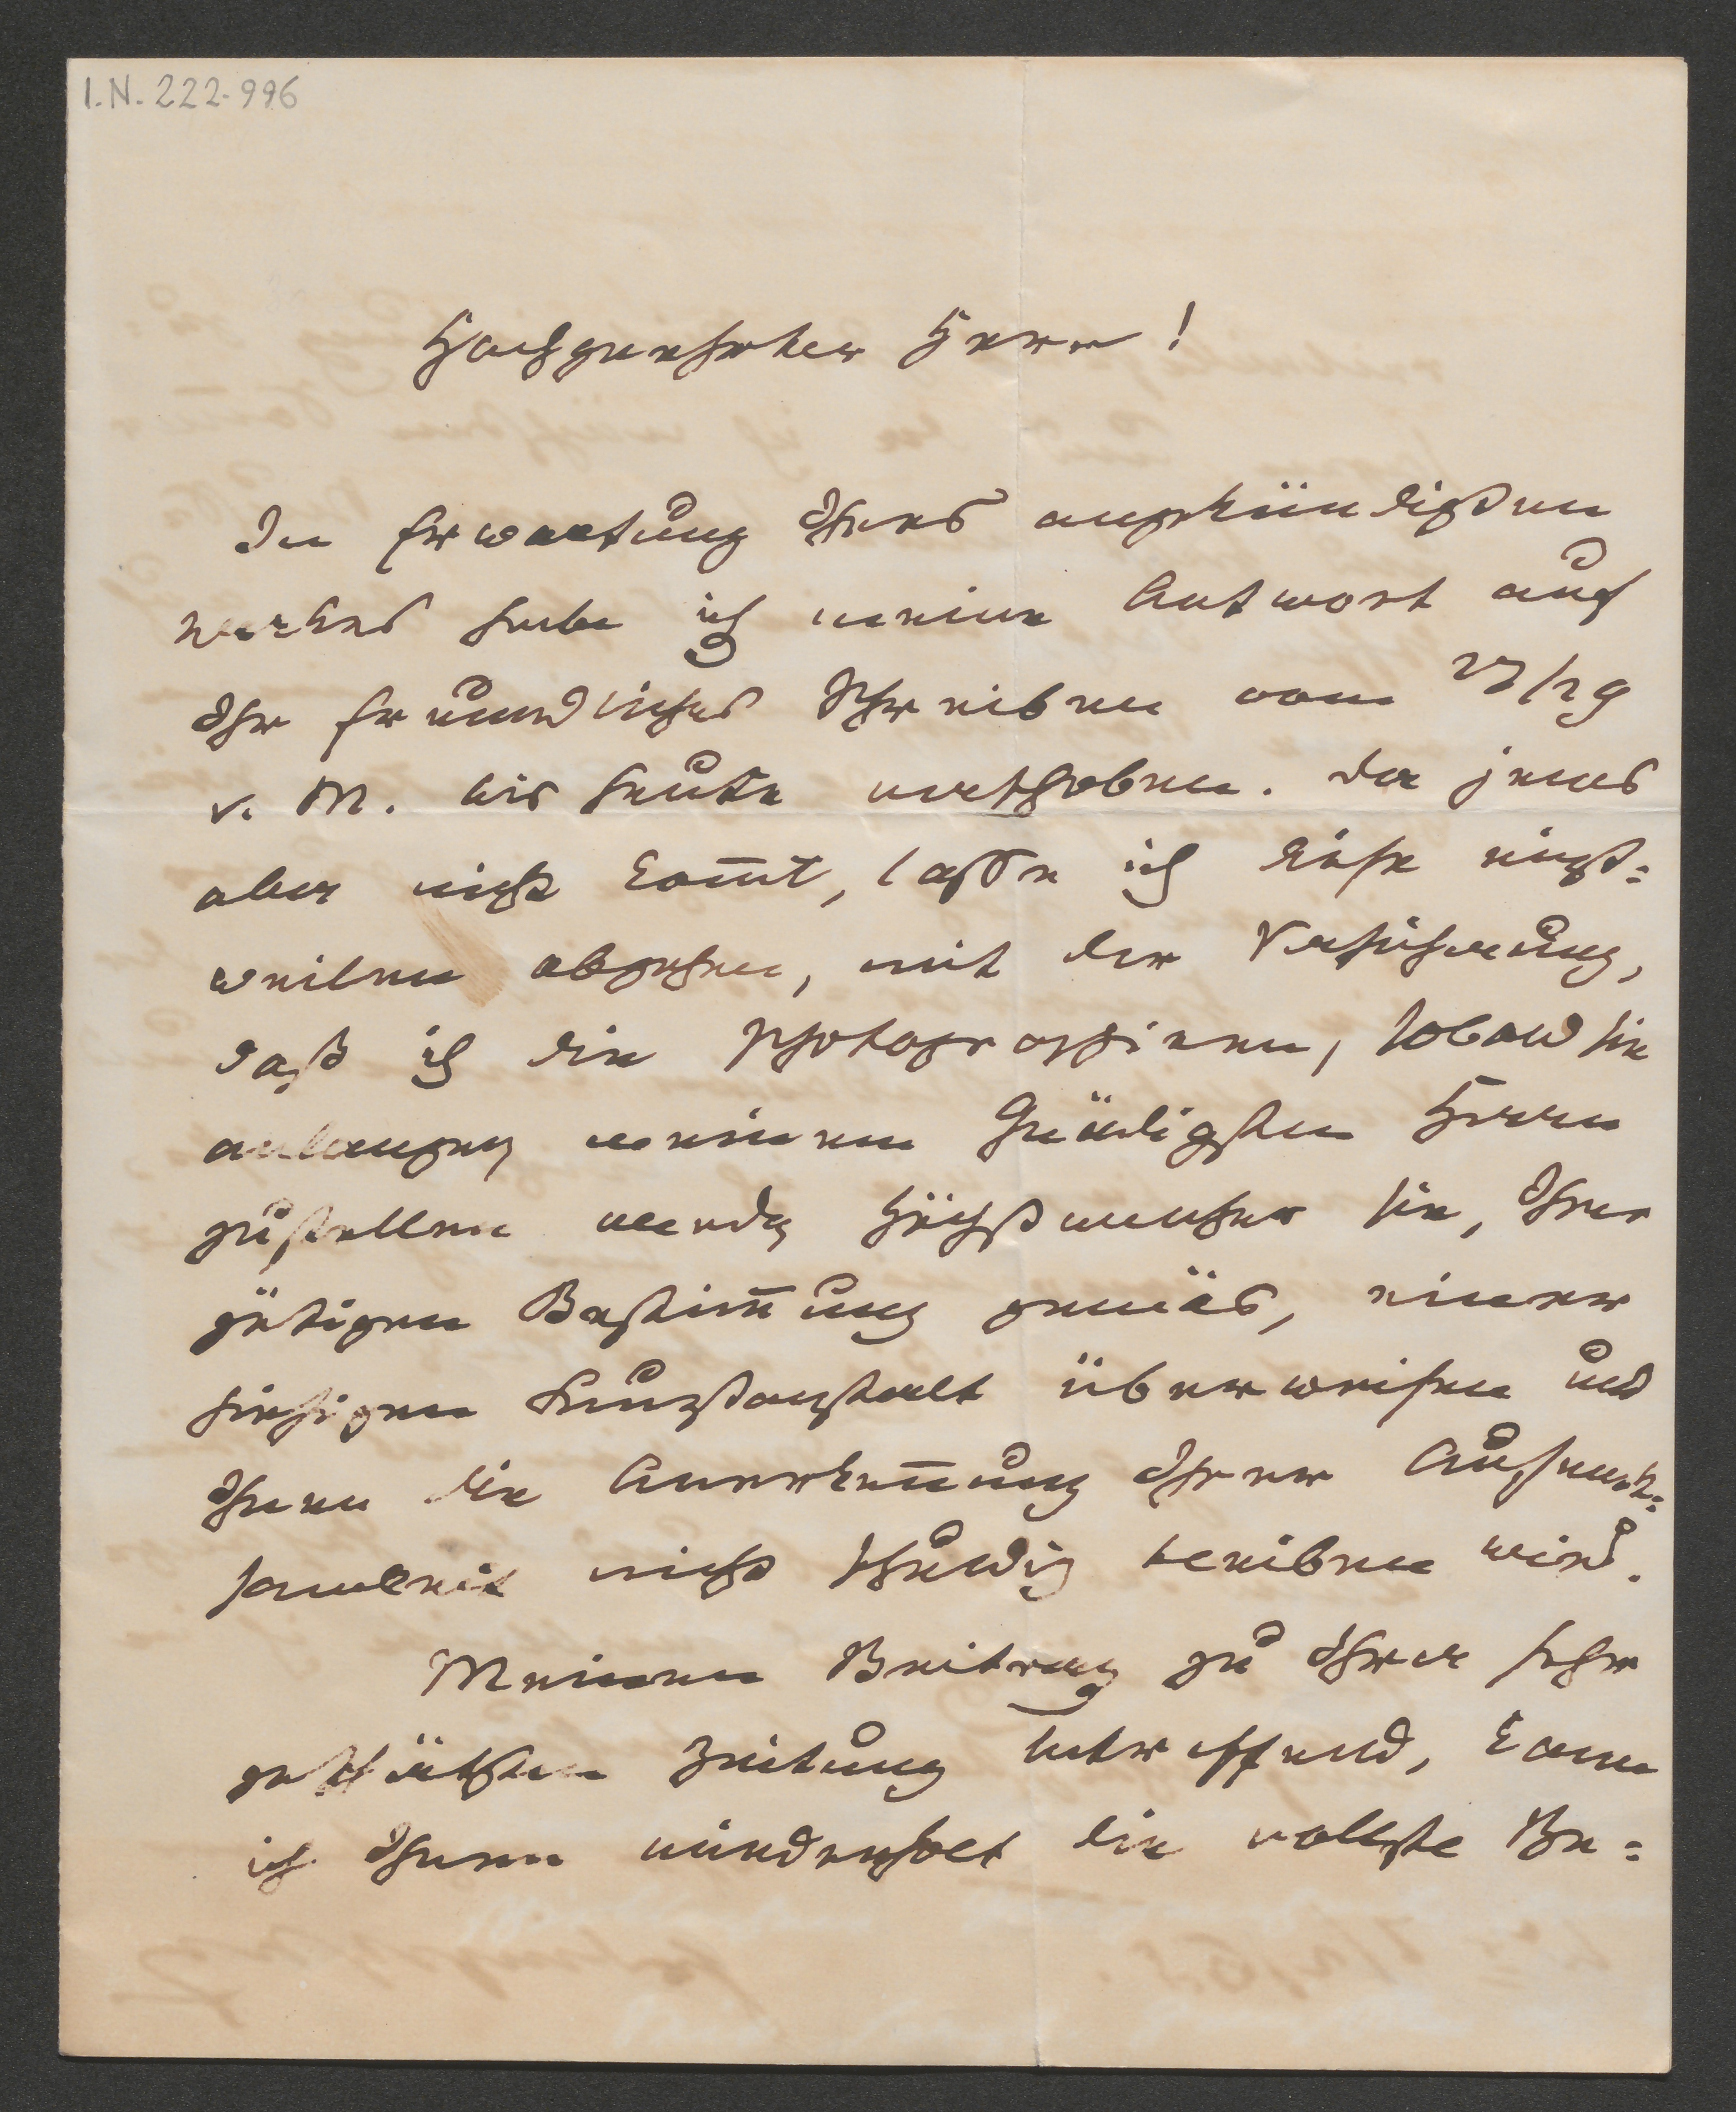 I.N. 222.996
Hochgeehrter Herr!
In Erwartung Ihres angekündigten
Werkes habe ich meine Antwort auf
Ihr freundliches Schreiben vom 27/29
v. M. bis heute verschoben. Da jenes
aber nicht kom̄t, lasse ich diese einst=
weilen abgehen, mit der Versicherung,
daß ich die Photographieen, sobald sie
anlangen, meinem Gnädigsten Herrn
zustellen werde, Höchstwelcher sie, Ihrer
gütigen Bestim̄ung gemäs, einer
hiesigen Kunstanstalt überweisen und
Ihnen die Anerken̄ung Ihrer Aufmerk=
samkeit nicht schuldig bleiben wird.
Meinen Beitrag zu Ihrer sehr
geschätzten Zeitung betreffend, kann
ich Ihnen wiederholt die vollste Be=